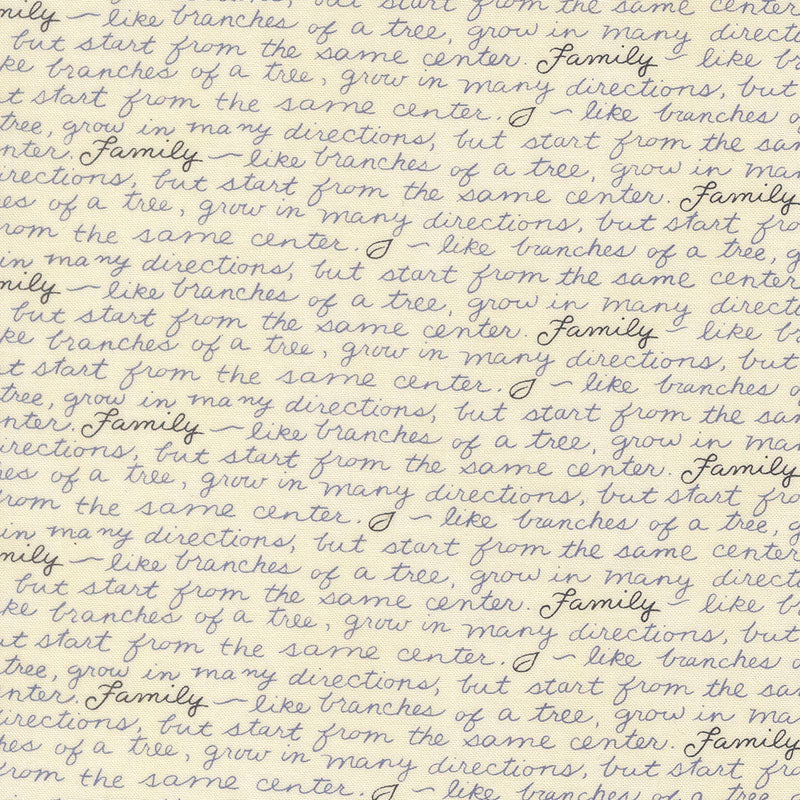 but start from the same center
mily ~ like branches of a tree, grow in many directi
but start from the same center. Family ~ like br
ke branches of a tree, grow in many directions, but
t start from the same center. ~ like branches o
tree, grow in many directions, but start from the sam
nter. Family ~ like branches of a tree, grow in man
irections, but start from the same center. Family
es of a tree, grow in many directions, but start fro
rom the same center. ~ like branches of a tree, g
in many directions, but start from the same center
mily ~ like branches of a tree, grow in many directi
but start from the same center. Family ~ like b
ke branches of a tree, grow in many directions, but
t start from the same center. ~ like branches o
tree, grow in many directions, but start from the sam
nter. Family ~ like branches of a tree, grow in man
irections, but start from the same center. Family
hes of a tree, grow in many directions, but start fro
from the same center. ~ like branches of a tree, g
in many directions, but start from the same center
mily ~ like branches of a tree, grow in many directi
but start from the same center. Family ~ like b
ke branches of a tree, grow in many directions, but
ut start from the same center. ~ like branches o
tree, grow in many directions, but start from the sa
nter. Family ~ like branches of a tree, grow in ma
directions, but start from the same center. Family
hes of a tree, grow in many directions, but start fro
from the same center. ~ like branches of a tree, g